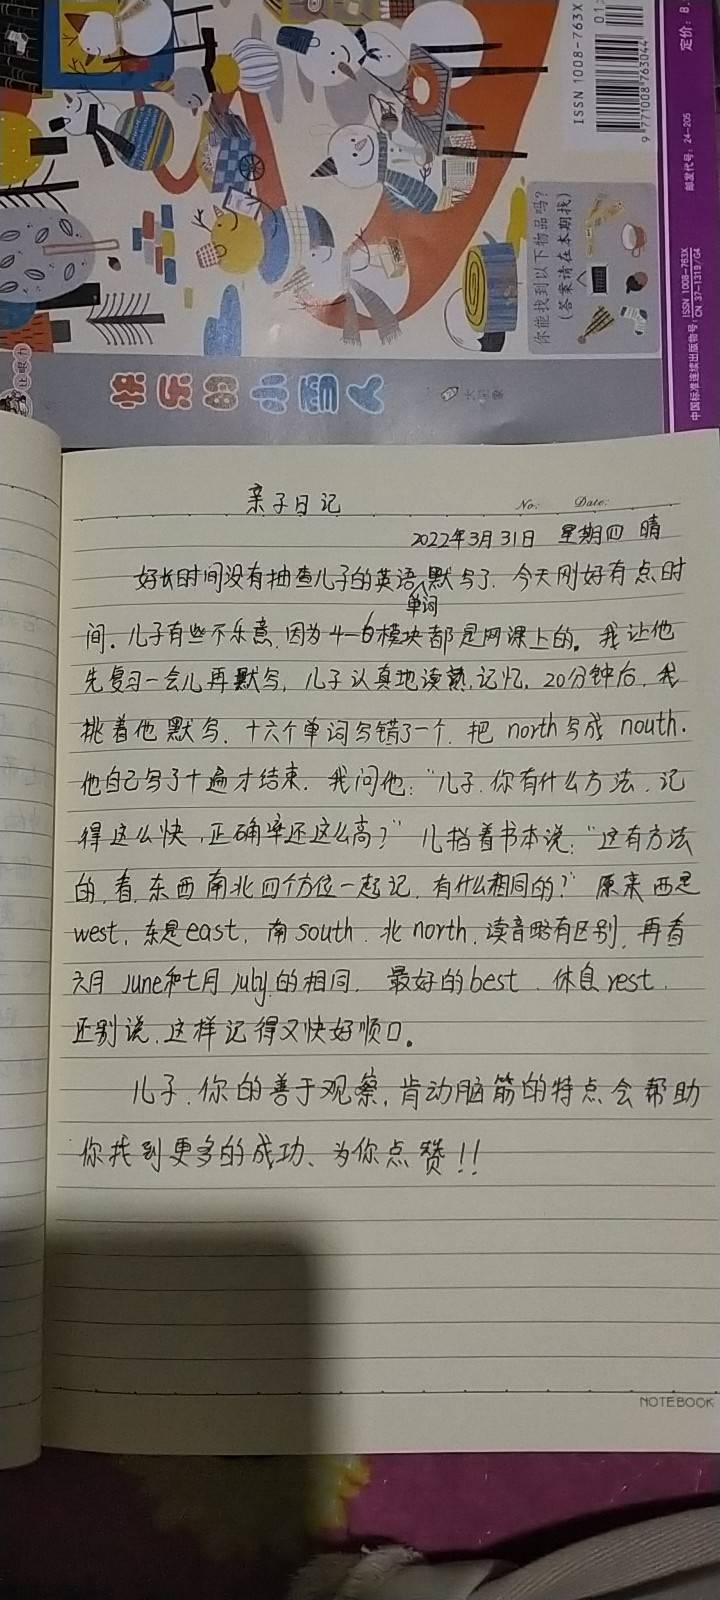 ISSN 1008-763X
9 771008 763044
定价：8.
邮发代号：24-205
中国标准连续出版物号：ISSN 1008-763X
CN 37-1319/G4
你能找到以下物品吗？
（答案请在本期找）
快乐的小雪人
亲子日记
No: Date:
2022年3月31日 星期四 晴
好长时间没有抽查儿子的英语单词默写了．今天刚好有点时
间．儿子有些不乐意，因为4—6模块都是网课上的。我让他
先复习一会儿再默写，儿子认真地读熟，记忆，20分钟后，我
挑着他默写．十六个单词写错了一个．把 north写成 nouth.
他自己写了十遍才结束．我问他：“儿子．你有什么方法．记
得这么快，正确率还这么高？” 儿指着书本说：“这有方法
的，看，东西南北四个方位一起记，有什么相同的？” 原来西是
west，东是east，南south．北north，读音略有区别，再看
六月 June和七月July的相同．最好的best．休息rest．
还别说，这样记得又快好顺口。
儿子．你的善于观察，肯动脑筋的特点会帮助
你找到更多的成功、为你点赞！！
NOTEBOOK